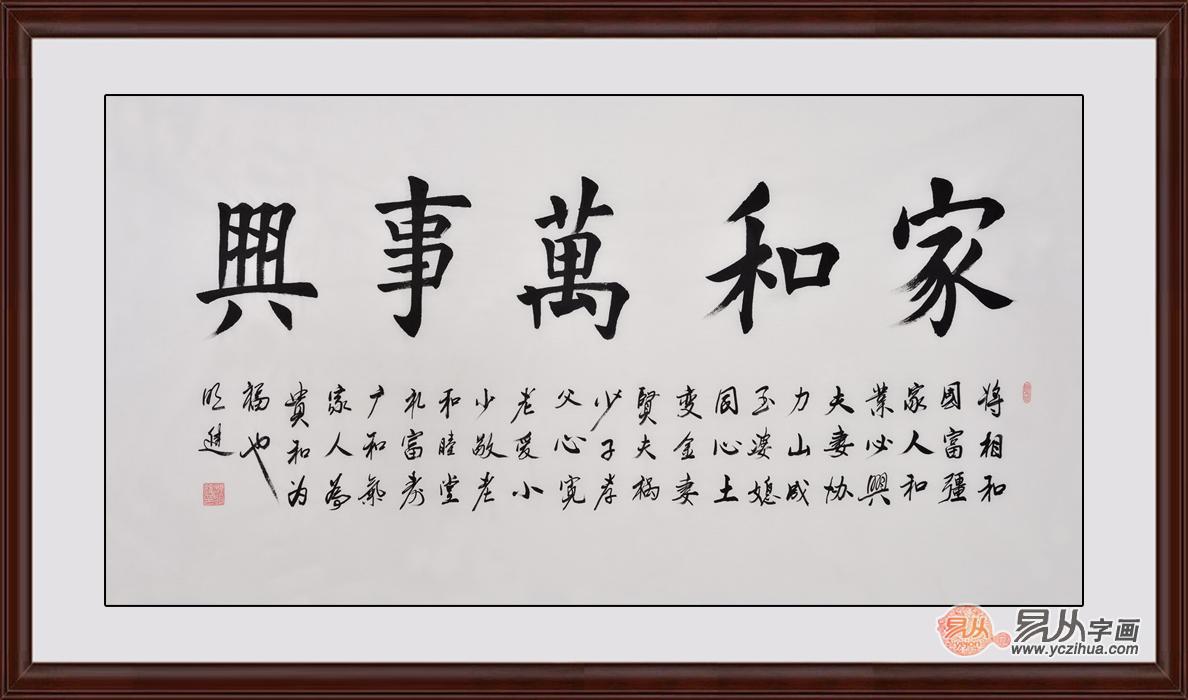 家和萬事興
将相和
國富疆
家人和
業必興
夫妻协
力山成
玉婆媳
同心土
变金妻
賢夫祸
少子孝
父心宽
老爱小
少敬老
和睦堂
礼富寿
广和氣
家人為
貴和为
福也
易从字画
www.yczihua.com
yicon